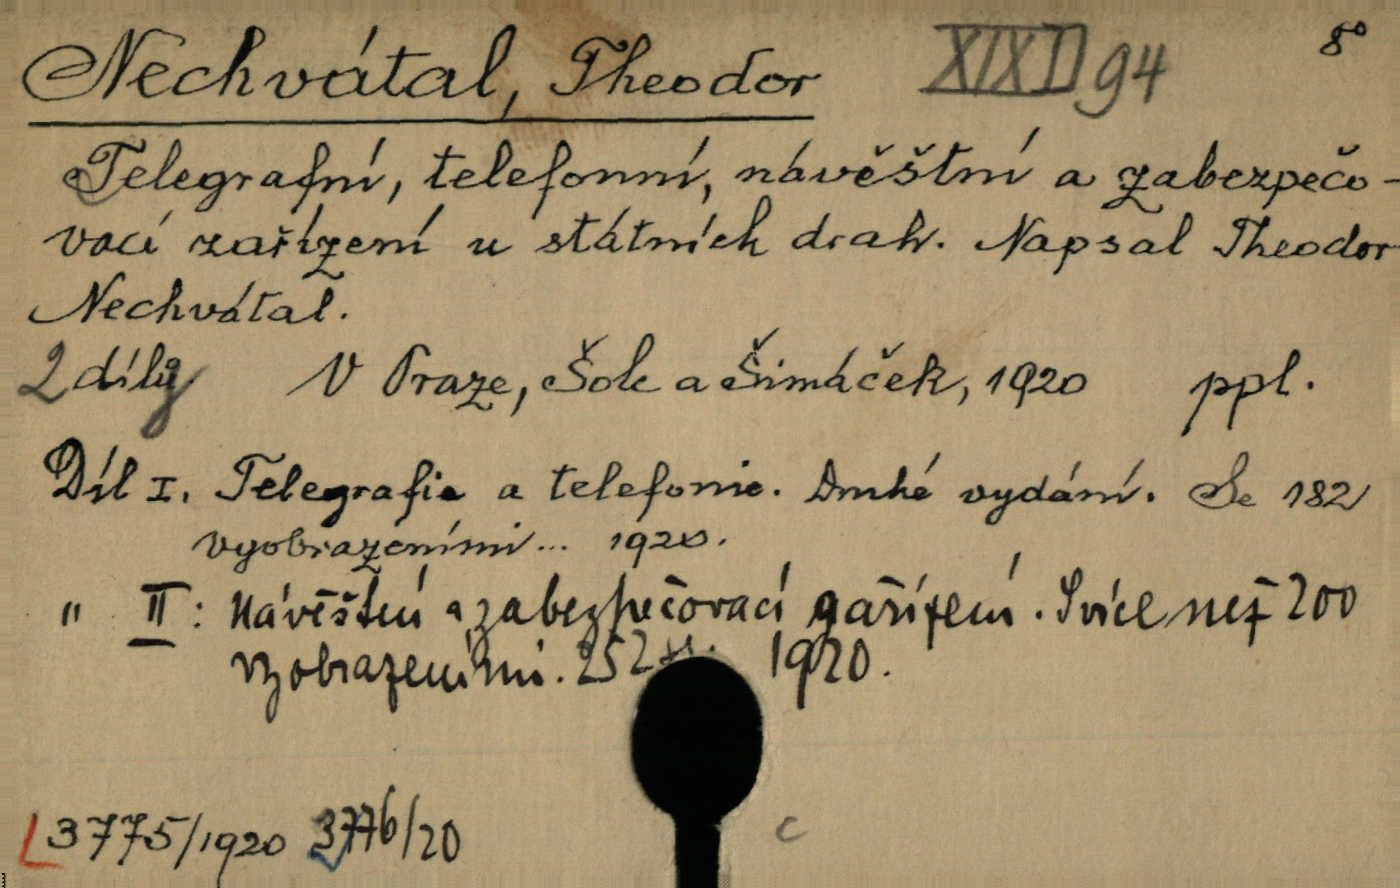 Nechvátal, Theodor XIX D 94 8°
Telegrafní, telefonní, návěštní a zabezpečo-
vací zařízení u státních drah. Napsal Theodor
Nechvátal.
2 díly V Praze, Šolc a Šimáček, 1920 ppl.
Díl I. Telegrafie a telefonie. Druhé vydání. Se 182
vyobrazeními... 1920.
" II: Návěštní a zabezpečovací zařízení. S více než 200
vyobrazeními. 252 1920.
3775/1920 3776/20
c